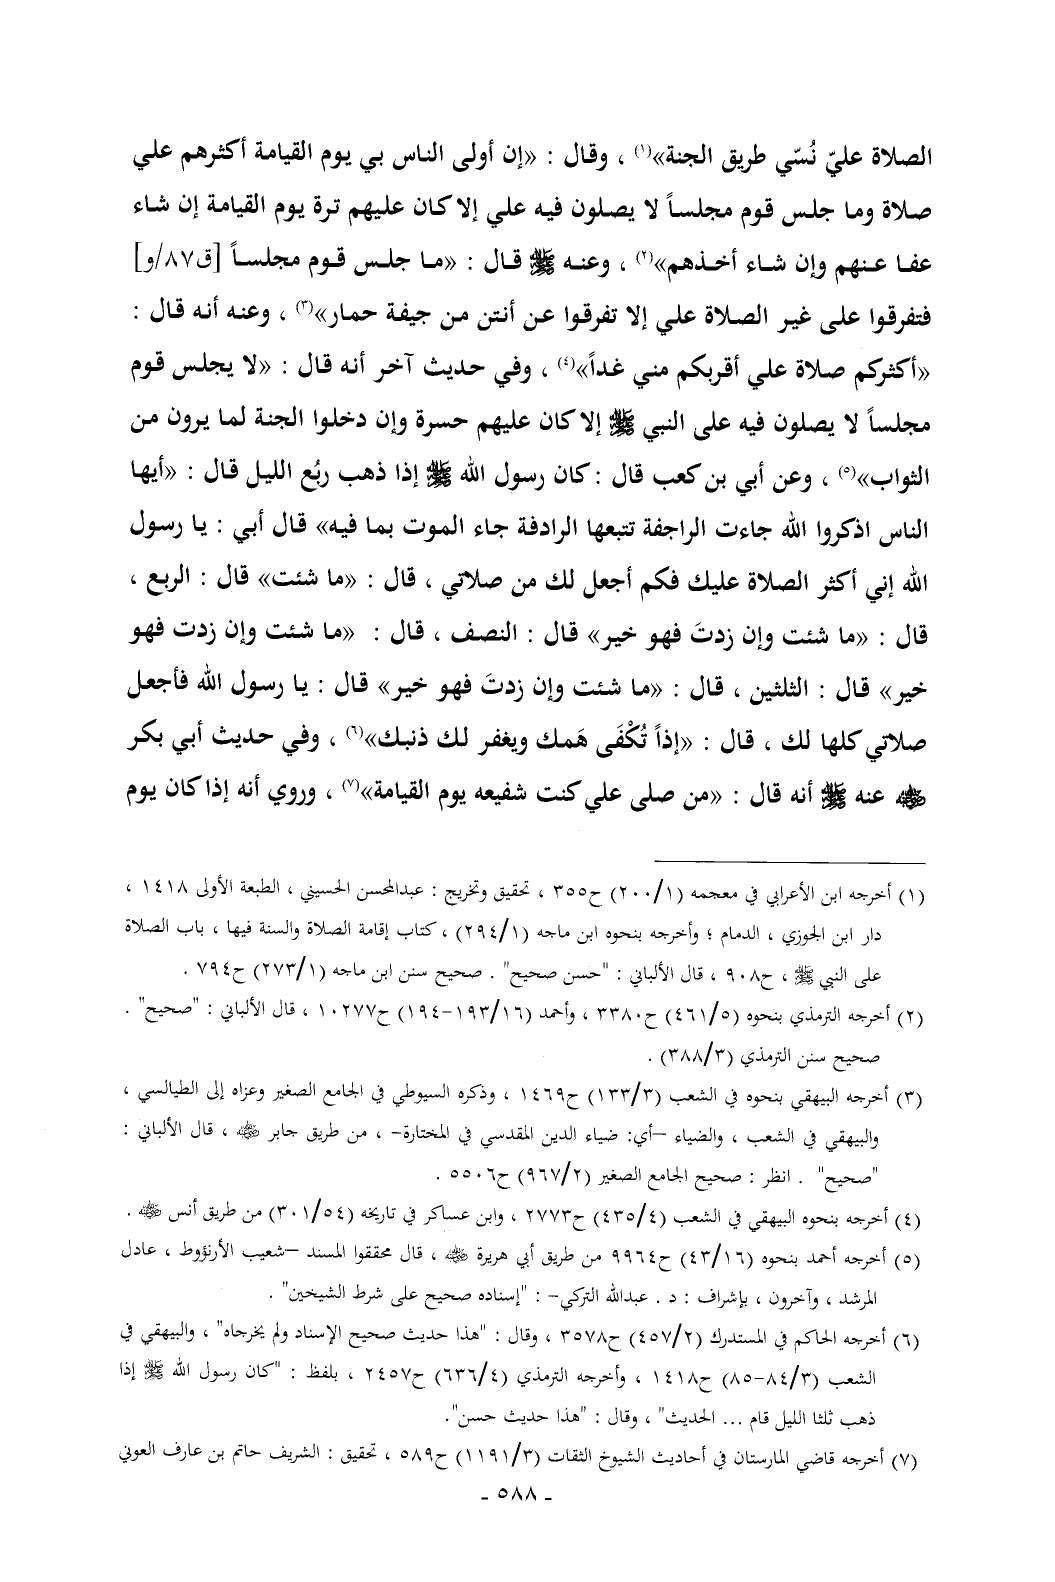 الصلاة عليّ نُسّي طريق الجنة»(١) ، وقال : «إن أولى الناس بي يوم القيامة أكثرهم علي
صلاة وما جلس قوم مجلساً لا يصلون فيه علي إلا كان عليهم ترة يوم القيامة إن شاء
عفا عنهم وإن شاء أخذهم»(٢) ، وعنه ﷺ قال : «ما جلس قوم مجلساً [ق٨٧/و]
فتفرقوا على غير الصلاة علي إلا تفرقوا عن أنتن من جيفة حمار»(٣) ، وعنه أنه قال :
«أكثركم صلاة علي أقربكم مني غداً»(٤) ، وفي حديث آخر أنه قال : «لا يجلس قوم
مجلساً لا يصلون فيه على النبي ﷺ إلا كان عليهم حسرة وإن دخلوا الجنة لما يرون من
الثواب»(٥) ، وعن أبي بن كعب قال : كان رسول الله ﷺ إذا ذهب ربُع الليل قال : «أيها
الناس اذكروا الله جاءت الراجفة تتبعها الرادفة جاء الموت بما فيه» قال أبي : يا رسول
الله إني أكثر الصلاة عليك فكم أجعل لك من صلاتي ، قال : «ما شئت» قال : الربع ،
قال : «ما شئت وإن زدتَ فهو خير» قال : النصف ، قال : «ما شئت وإن زدت فهو
خير» قال : الثلثين ، قال : «ما شئت وإن زدتَ فهو خير» قال : يا رسول الله فأجعل
صلاتي كلها لك ، قال : «إذاً تُكْفَى هَمك ويغفر لك ذنبك»(٦) ، وفي حديث أبي بكر
﵁ عنه ﷺ أنه قال : «من صلى علي كنت شفيعه يوم القيامة»(٧) ، وروي أنه إذا كان يوم
(١) أخرجه ابن الأعرابي في معجمه (٢٠٠/١) ح٣٥٥ ، تحقيق وتخريج : عبدالمحسن الحسيني ، الطبعة الأولى ١٤١٨ ،
دار ابن الجوزي ، الدمام ؛ وأخرجه بنحوه ابن ماجه (٢٩٤/١) ، كتاب إقامة الصلاة والسنة فيها ، باب الصلاة
على النبي ﷺ ، ح٩٠٨ ، قال الألباني : "حسن صحيح" . صحيح سنن ابن ماجه (٢٧٣/١) ح٧٩٤ .
(٢) أخرجه الترمذي بنحوه (٤٦١/٥) ح٣٣٨٠ ، وأحمد (١٩٣/١٦-١٩٤) ح١٠٢٧٧ ، قال الألباني : "صحيح" .
صحيح سنن الترمذي (٣٨٨/٣) .
(٣) أخرجه البيهقي بنحوه في الشعب (١٣٣/٣) ح١٤٦٩ ، وذكره السيوطي في الجامع الصغير وعزاه إلى الطيالسي ،
والبيهقي في الشعب ، والضياء –أي: ضياء الدين المقدسي في المختارة– ، من طريق جابر ﵁ ، قال الألباني :
"صحيح" . انظر : صحيح الجامع الصغير (٩٦٧/٢) ح٥٥٠٦ .
(٤) أخرجه بنحوه البيهقي في الشعب (٤٣٥/٤) ح٢٧٧٣ ، وابن عساكر في تاريخه (٣٠١/٥٤) من طريق أنس ﵁ .
(٥) أخرجه أحمد بنحوه (٤٣/١٦) ح٩٩٦٤ من طريق أبي هريرة ﵁ ، قال محققوا المسند –شعيب الأرنؤوط ، عادل
المرشد ، وآخرون ، بإشراف : د . عبدالله التركي– : "إسناده صحيح على شرط الشيخين" .
(٦) أخرجه الحاكم في المستدرك (٤٥٧/٢) ح٣٥٧٨ ، وقال : "هذا حديث صحيح الإسناد ولم يخرجاه" ، والبيهقي في
الشعب (٨٤/٣-٨٥) ح١٤١٨ ، وأخرجه الترمذي (٦٣٦/٤) ح٢٤٥٧ ، بلفظ : "كان رسول الله ﷺ إذا
ذهب ثلثا الليل قام ... الحديث" ، وقال : "هذا حديث حسن".
(٧) أخرجه قاضي المارستان في أحاديث الشيوخ الثقات (١١٩١/٣) ح٥٨٩ ، تحقيق : الشريف حاتم بن عارف العوني
- ٥٨٨ -